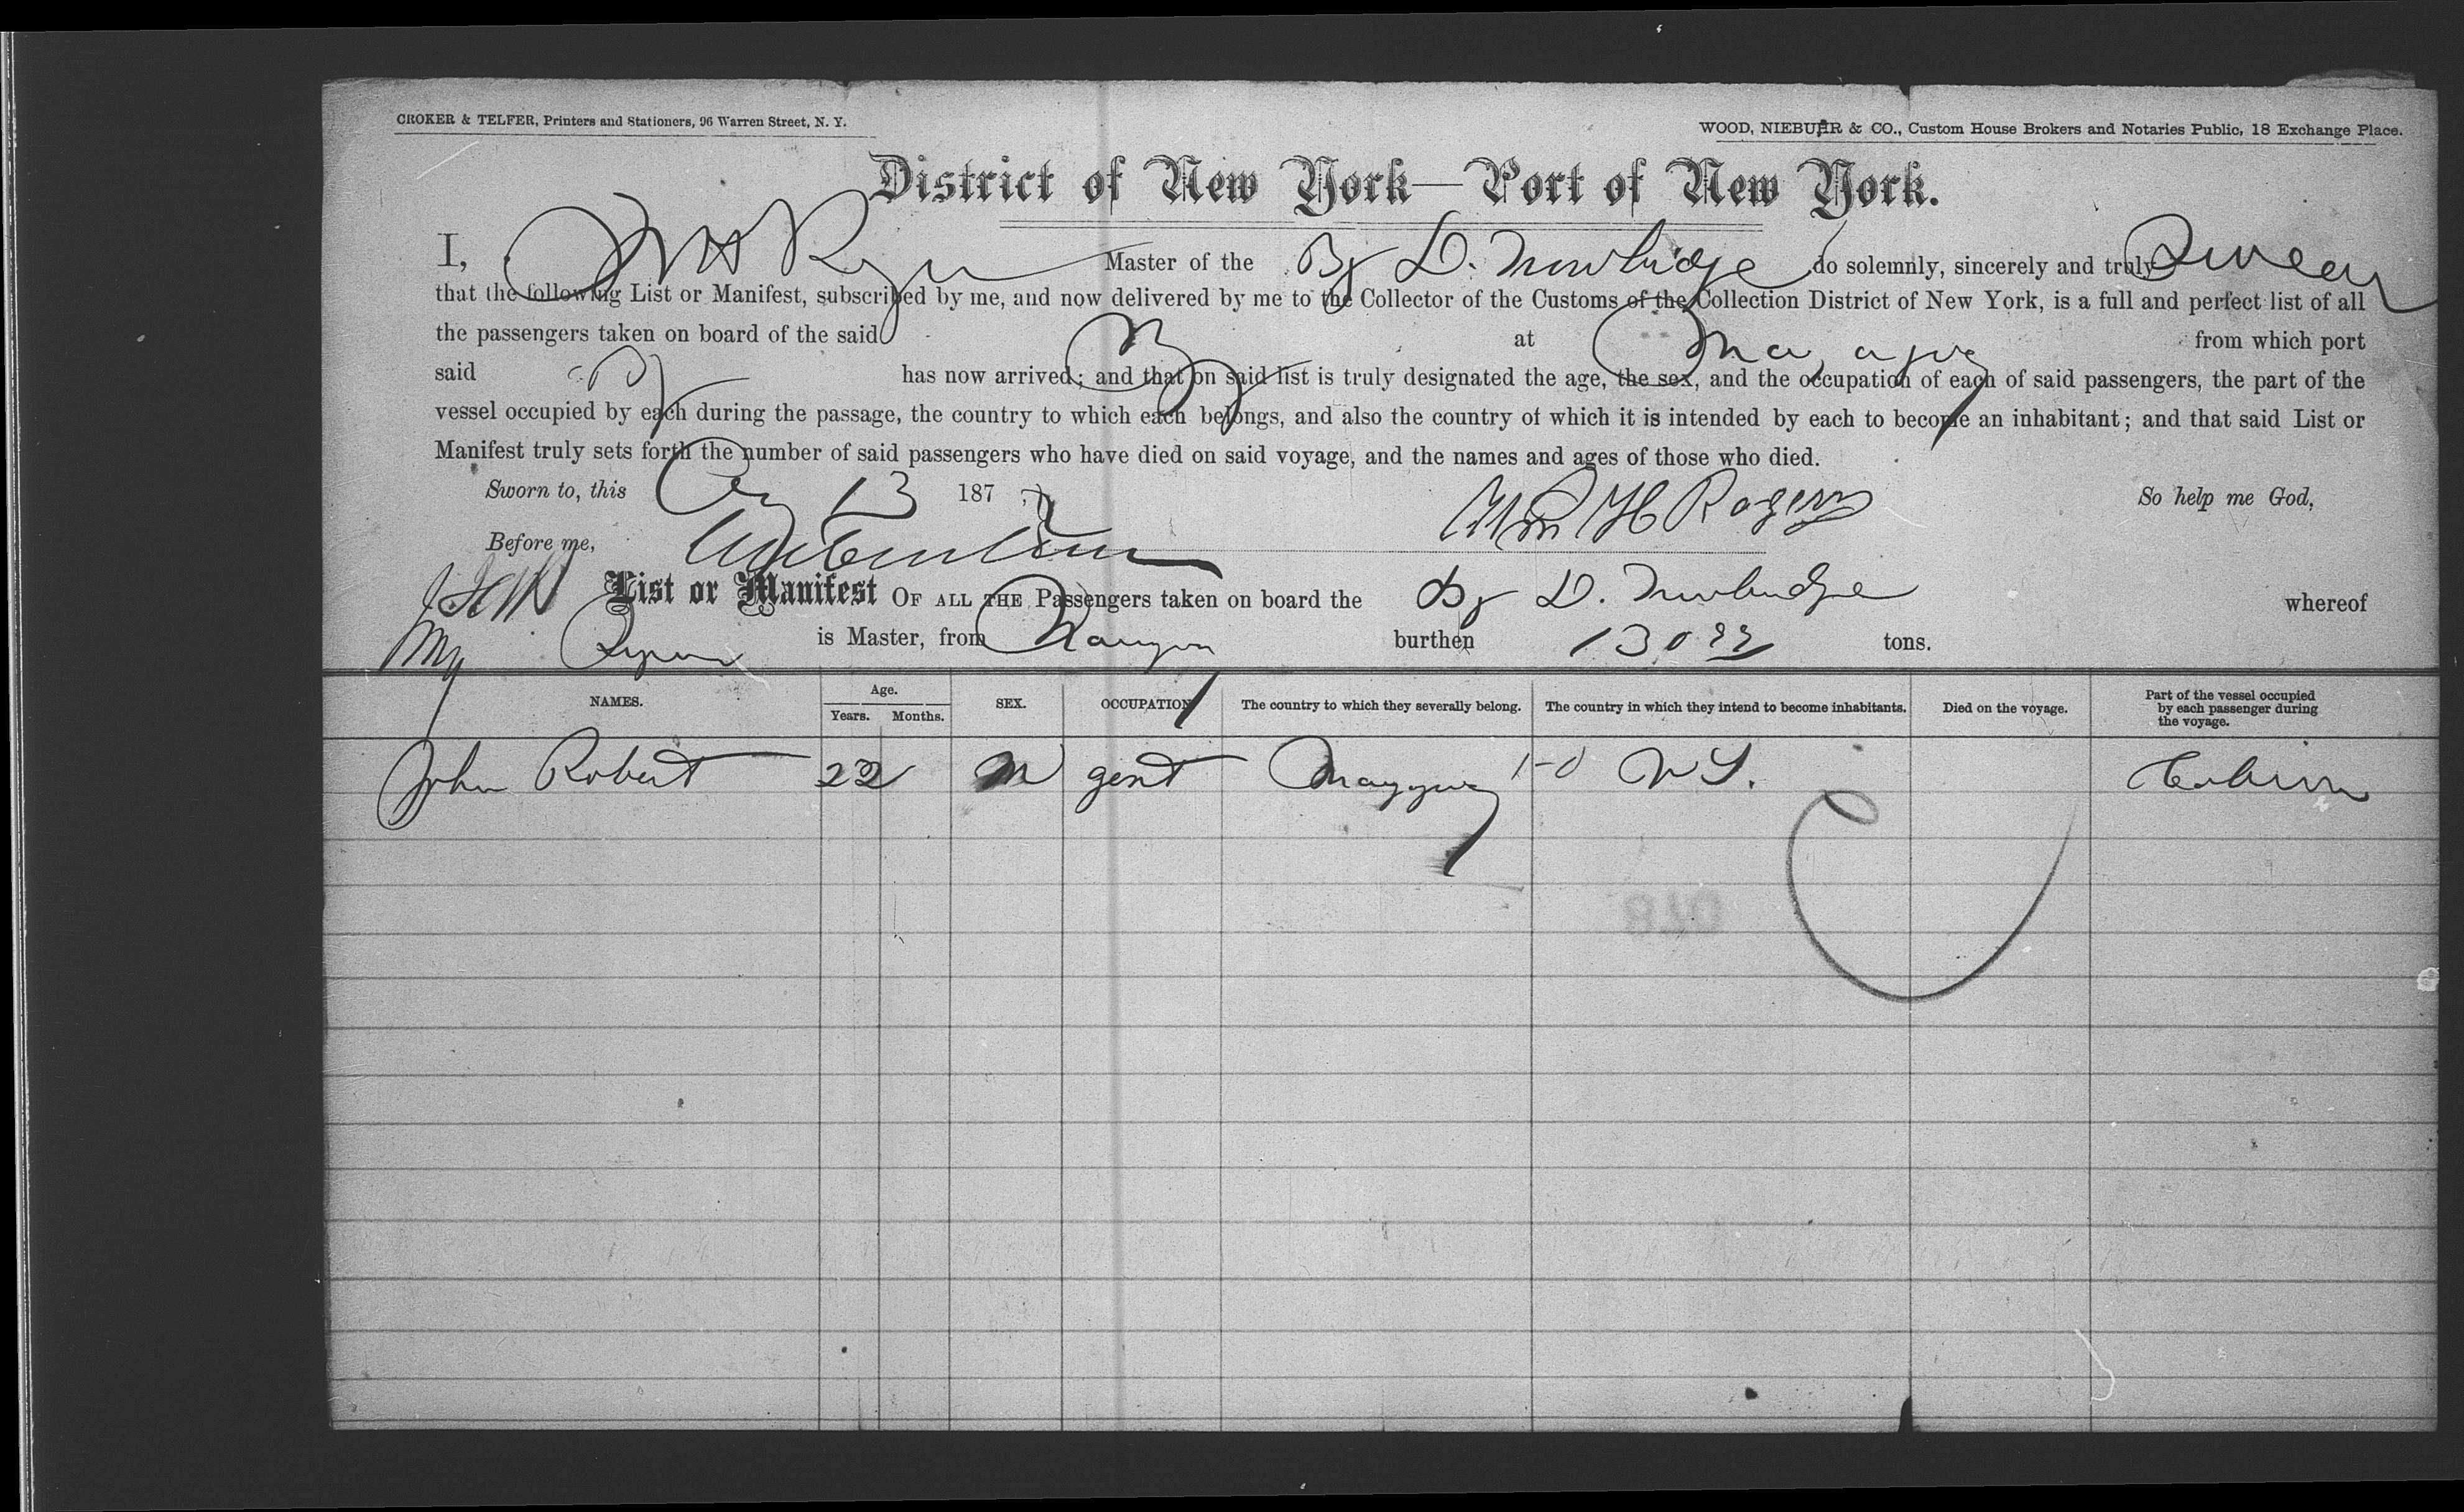 CROKER & TELFER, Printers and Stationers, 96 Warren Street, N. Y.
WOOD, NIEBUHR & CO., Custom House Brokers and Notaries Public, 18 Exchange Place.
District of New York—Port of New York.
I, Master of the Bg D. Trowbridge do solemnly, sincerely and truly Swear
that the following List or Manifest, subscribed by me, and now delivered by me to the Collector of the Customs of the Collection District of New York, is a full and perfect list of all
the passengers taken on board of the said Bg at from which port
said Bg has now arrived; and that on said list is truly designated the age, the sex, and the occupation of each of said passengers, the part of the
vessel occupied by each during the passage, the country to which each belongs, and also the country of which it is intended by each to become an inhabitant; and that said List or
Manifest truly sets forth the number of said passengers who have died on said voyage, and the names and ages of those who died.
Sworn to, this 13 187 So help me God,
Before me, Wm H Rogers
List or Manifest OF ALL THE Passengers taken on board the Bg D. Trowbridge whereof
is Master, from burthen tons.
NAMES. Age. Years. Months. SEX. OCCUPATION The country to which they severally belong. The country in which they intend to become inhabitants. Died on the voyage. Part of the vessel occupied by each passenger during the voyage.
John Robert 22 M gent Cabin